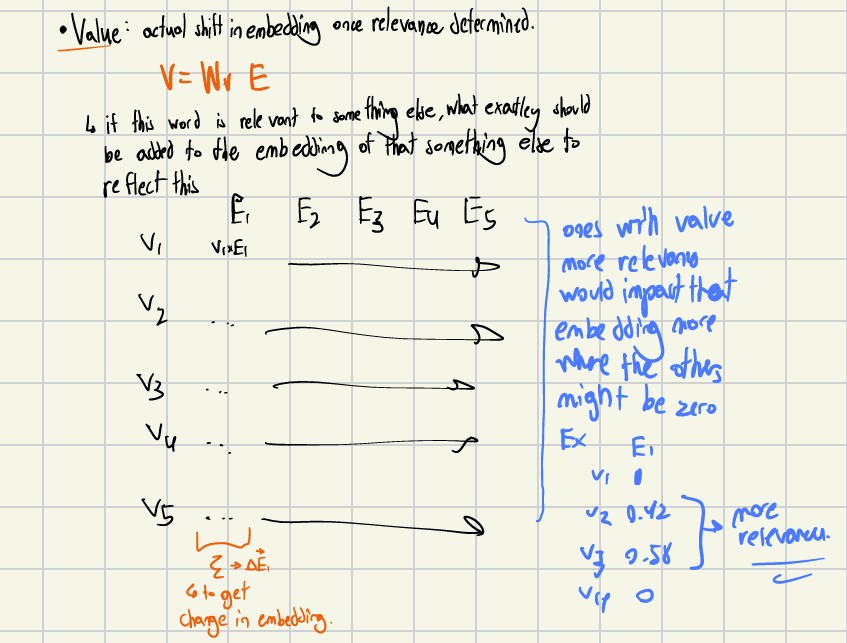 • Value: actual shift in embedding once relevance determined.
V = Wv E
↳ if this word is relevant to something else, what exactley should
be added to the embedding of that something else to
reflect this
E₁ E₂ E₃ E₄ E₅
V₁ V₁×E₁
V₂ ...
V₃ ...
V₄ ...
V₅ ...
Σ → ΔE₁
↳ to get
change in embedding.
ones with value
more relevans
would impact that
embedding more
where the others
might be zero
Ex E₁
V₁ 0
V₂ 0.42
V₃ 0.58
V₄ 0
more
relevance.